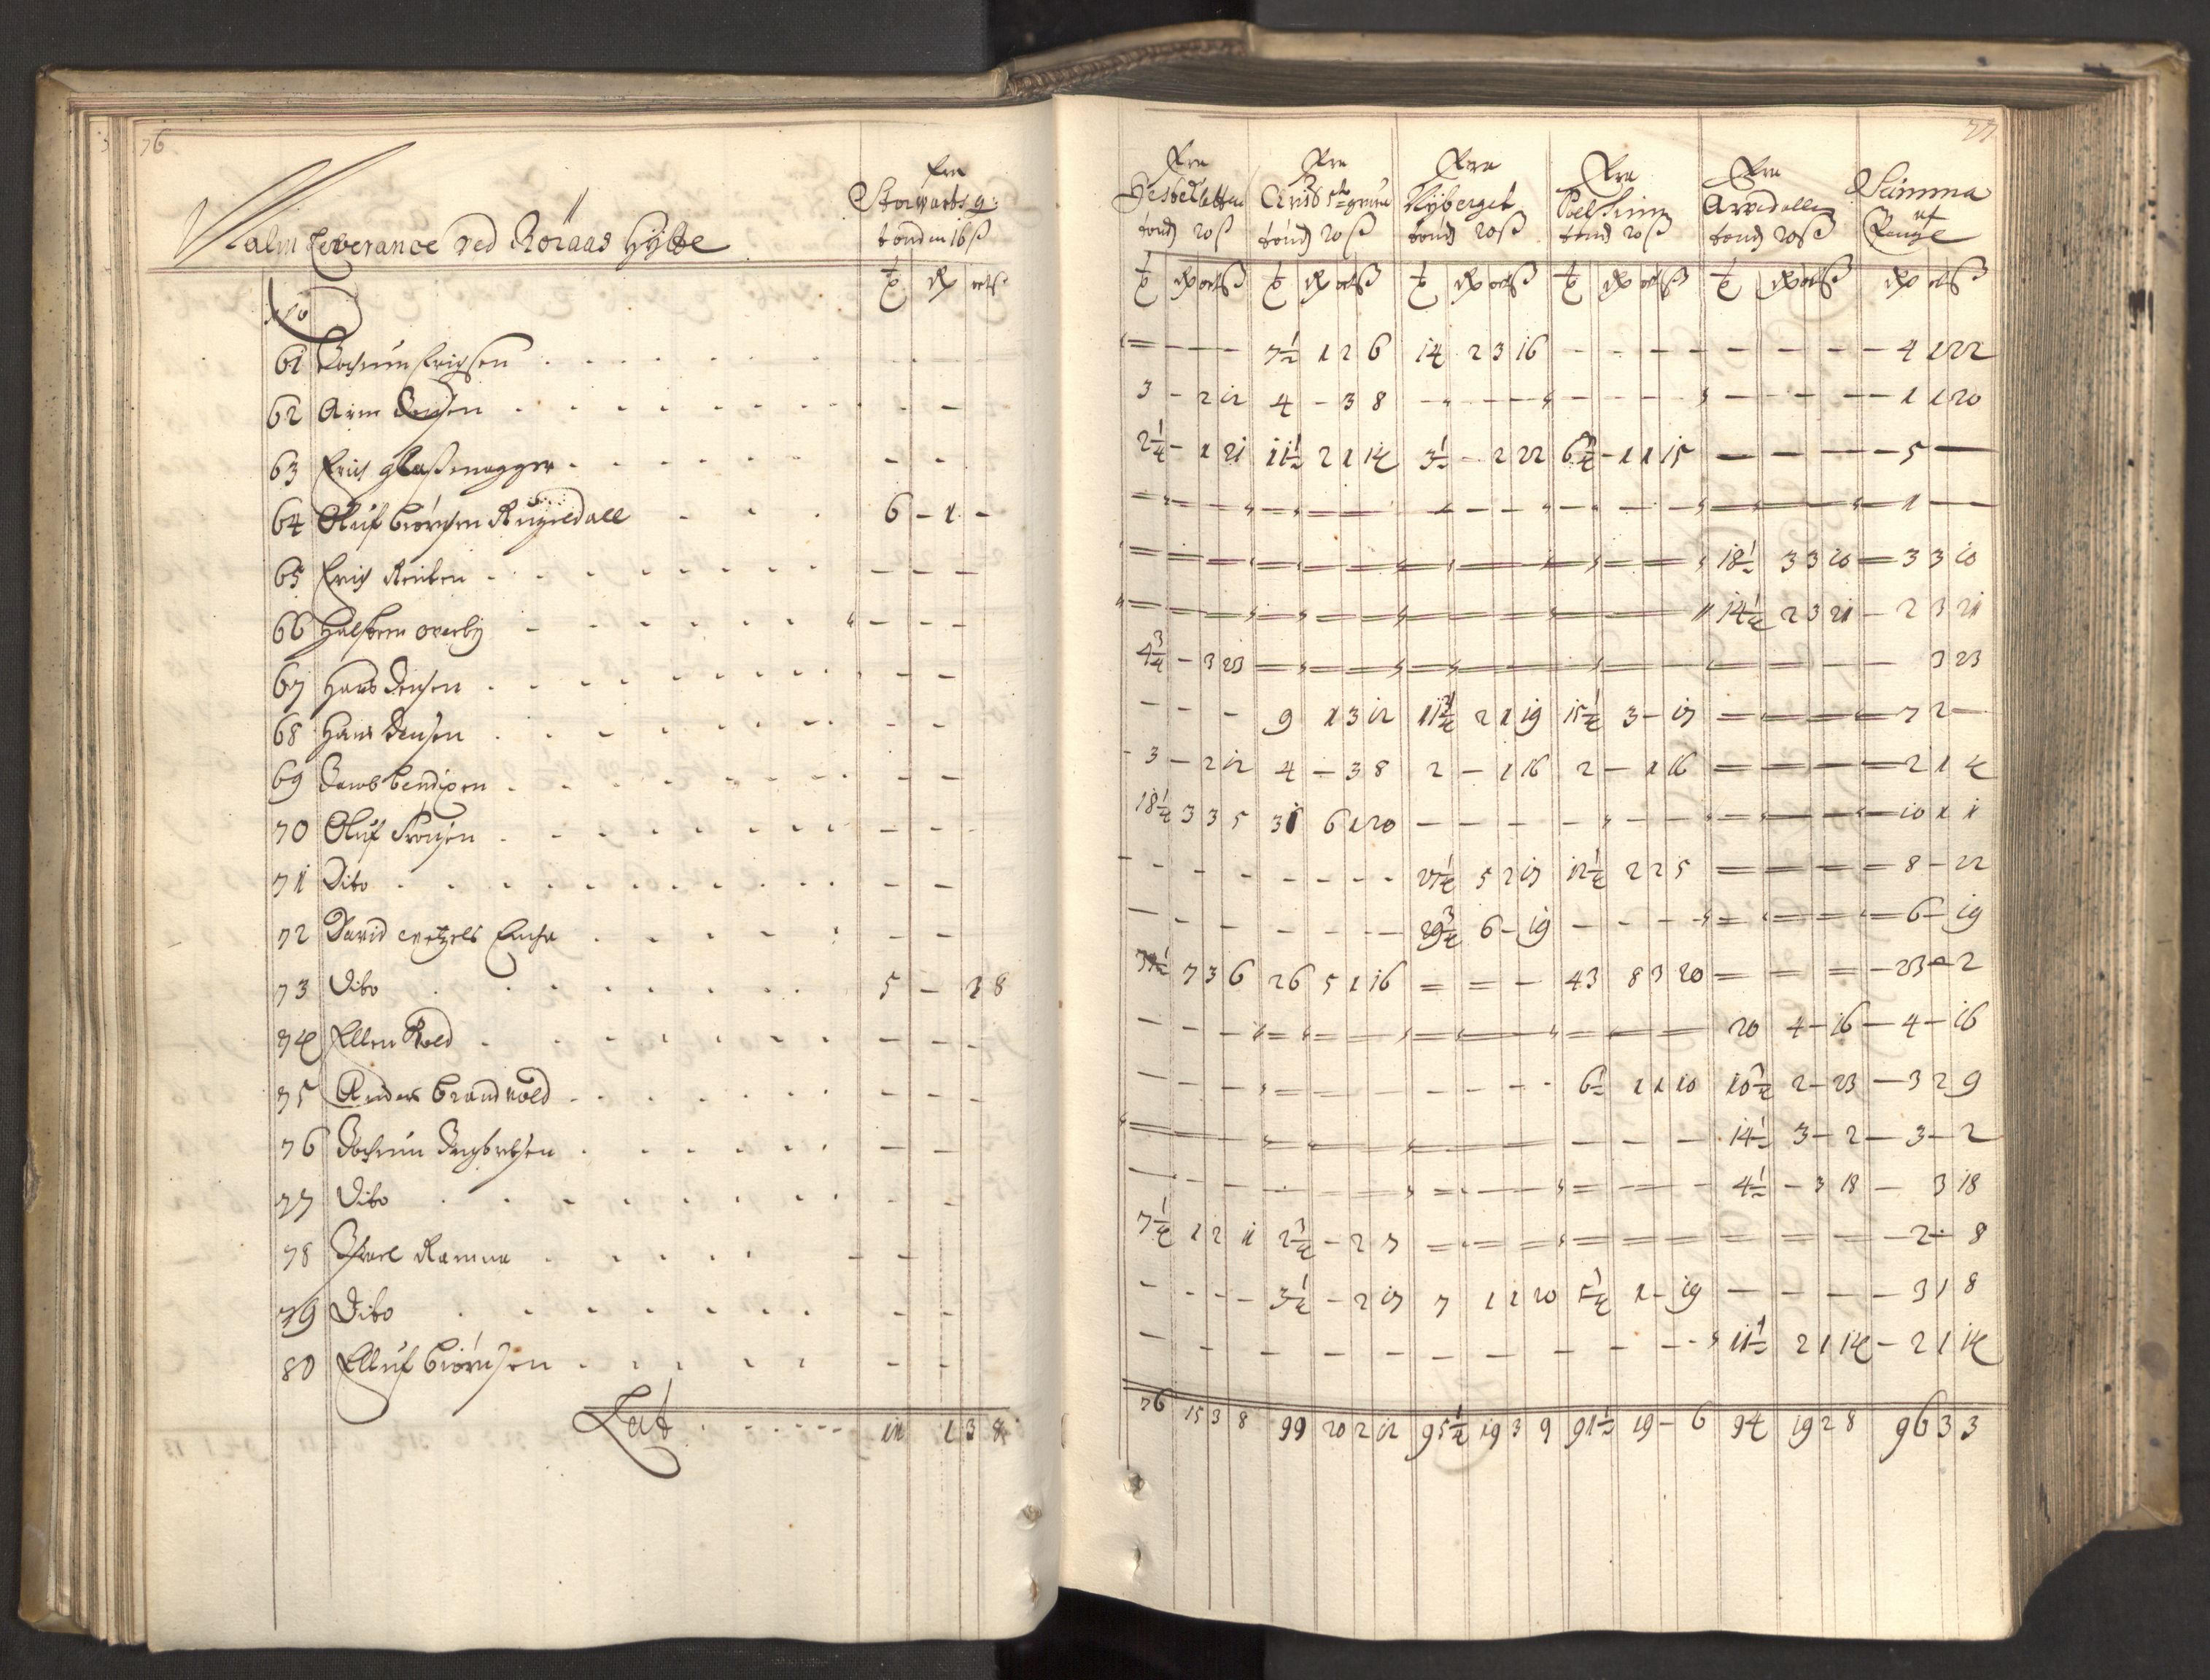 76
Malm Leverance ved Röraas Hÿtte
Fra
Storwarts g:
tonden 16 ß
No
61 Jochum Erichsen
62 Arne Jensen - - -
63 Erich glaßmagger - - -
64 Oluf Biörnsen Rugeldall 6 - 1 -
65 Erich Reitten - - -
66 Halsteen overby - - -
67 Hans Jensen - - -
68 Hans Jensen - - -
69 Jacob bendixen - - -
70 Oluf - - -
71 Dito - - -
72 David - - -
73 Dito 5 - 3 8
74 Ellen Rold - - -
75 Anders Brandvold - - -
76 Jochum Ingbretsen - - -
77 Dito - - -
78 Ramma - - -
79 Dito - - -
80 Elluf Biörnsen - - -
Lat 11 1 3 8
77
Fra Fra Fra Fra Fra Summa
Hestkletten Christ 5te grube Nÿberget Arvedallen af
tond 20 ß tond 20 ß tond 20 ß tond 20 ß tond 20 ß Penge
- - - 7½ 1 2 6 14 2 3 16 - - - - - - 4 1 22
3 - 2 12 4 - 3 8 - - - - - - 1 1 20
2¼ - 1 21 11½ 2 1 14 3½ - 2 22 6¾ - 1 1 15 - - - 5 -
- - - - - - - - - - - - 1 -
- - - - - - - - - 18½ 3 3 10 - 3 3 10
- - - - - - - - - 14¼ 2 3 21 - 2 3 21
4¾ - 3 23 - - - - - - - - - 3 23
- - - 9 1 3 12 11¾ 2 1 19 15¼ 3 - 17 - - - 7 2 -
3 - 2 12 4 - 3 8 2 - 1 16 2 - 1 16 - - - 2 1 4
18¼ 3 3 5 31 6 1 20 - - - - - - - - - 10 1 1
- - - - - - 27¼ 5 2 17 12¼ 2 2 5 - - - 8 - 22
- - - - - - 29¾ 6 - 19 - - - - - - 6 - 19
37½ 7 3 6 26 5 1 16 - - - 43 8 3 20 - - - 23 - 2
- - - - - - - - - - - - 20 4 - 16 - 4 - 16
- - - - - - - - - 6½ 1 1 10 10¾ 2 - 23 - 3 2 9
- - - - - - - - - - - - 14½ 3 - 2 - 3 - 2
- - - - - - - - - - - - 4½ - 3 18 - 3 18
7¼ 1 2 1 2¾ - 2 7 - - - - - - - - - 2 - 8
- - - 3¼ - 2 17 7 1 1 20 5¼ 1 - 19 - - - 3 1 8
- - - - - - - - - - - - 11½ 2 1 14 - 2 1 14
76 15 3 8 99 20 2 12 95¼ 19 3 9 91½ 19 - 6 94 19 2 8 96 3 3